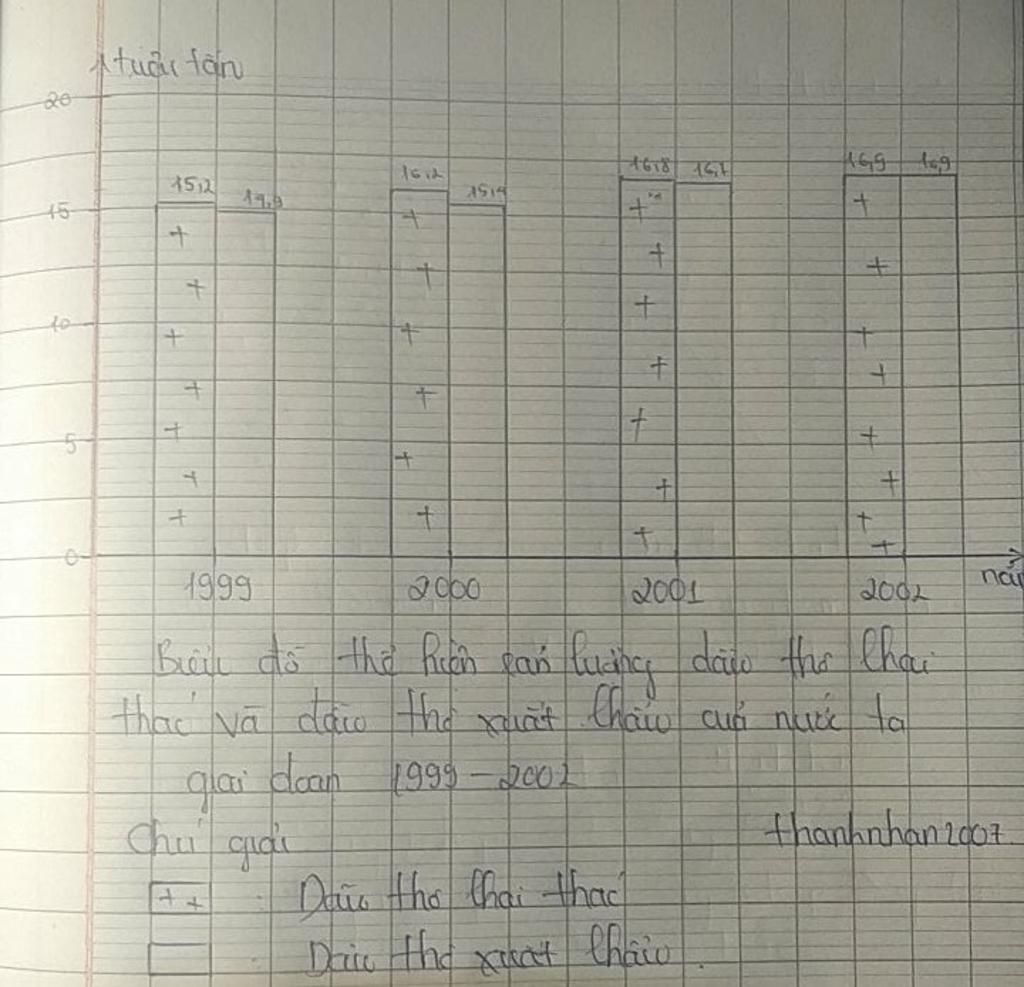 triệu tấn
20
15,2 14,9 16,2 15,4 16,8 16,7 16,9 16,9
15
10
5
0
1999 2000 2001 2002 năm
Biểu đồ thể hiện sản lượng dầu thô khai
thác và dầu thô xuất khẩu của nước ta
giai đoạn 1999 - 2002
Chú giải
thanhnhan2007
Dầu thô khai thác
Dầu thô xuất khẩu.